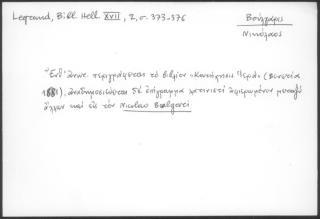 Legrand, Bibl. Hell. XVII, 2, σ. 373-376
Βούλγαρις
Νικόλαος
Ἔνθ' ἀνωτ. περιγράφεται τὸ βιβλίον «Κατήχησις Ἱερά» (Βενετία
1681). ἀναδημοσιεύεται δὲ ἐπίγραμμα λατινιστί ἀφιερωμένον μεταξύ
ἄλλων καὶ εἰς τὸν Nicolao Bulgari